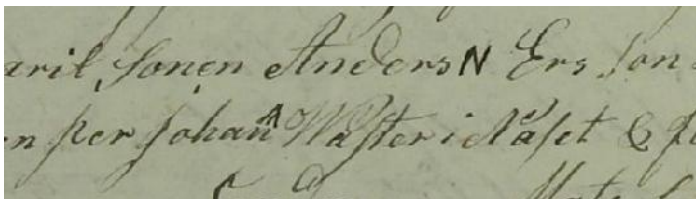 aril Sonen Anders N Ers Son
n Per Johan A Waster i Näset &